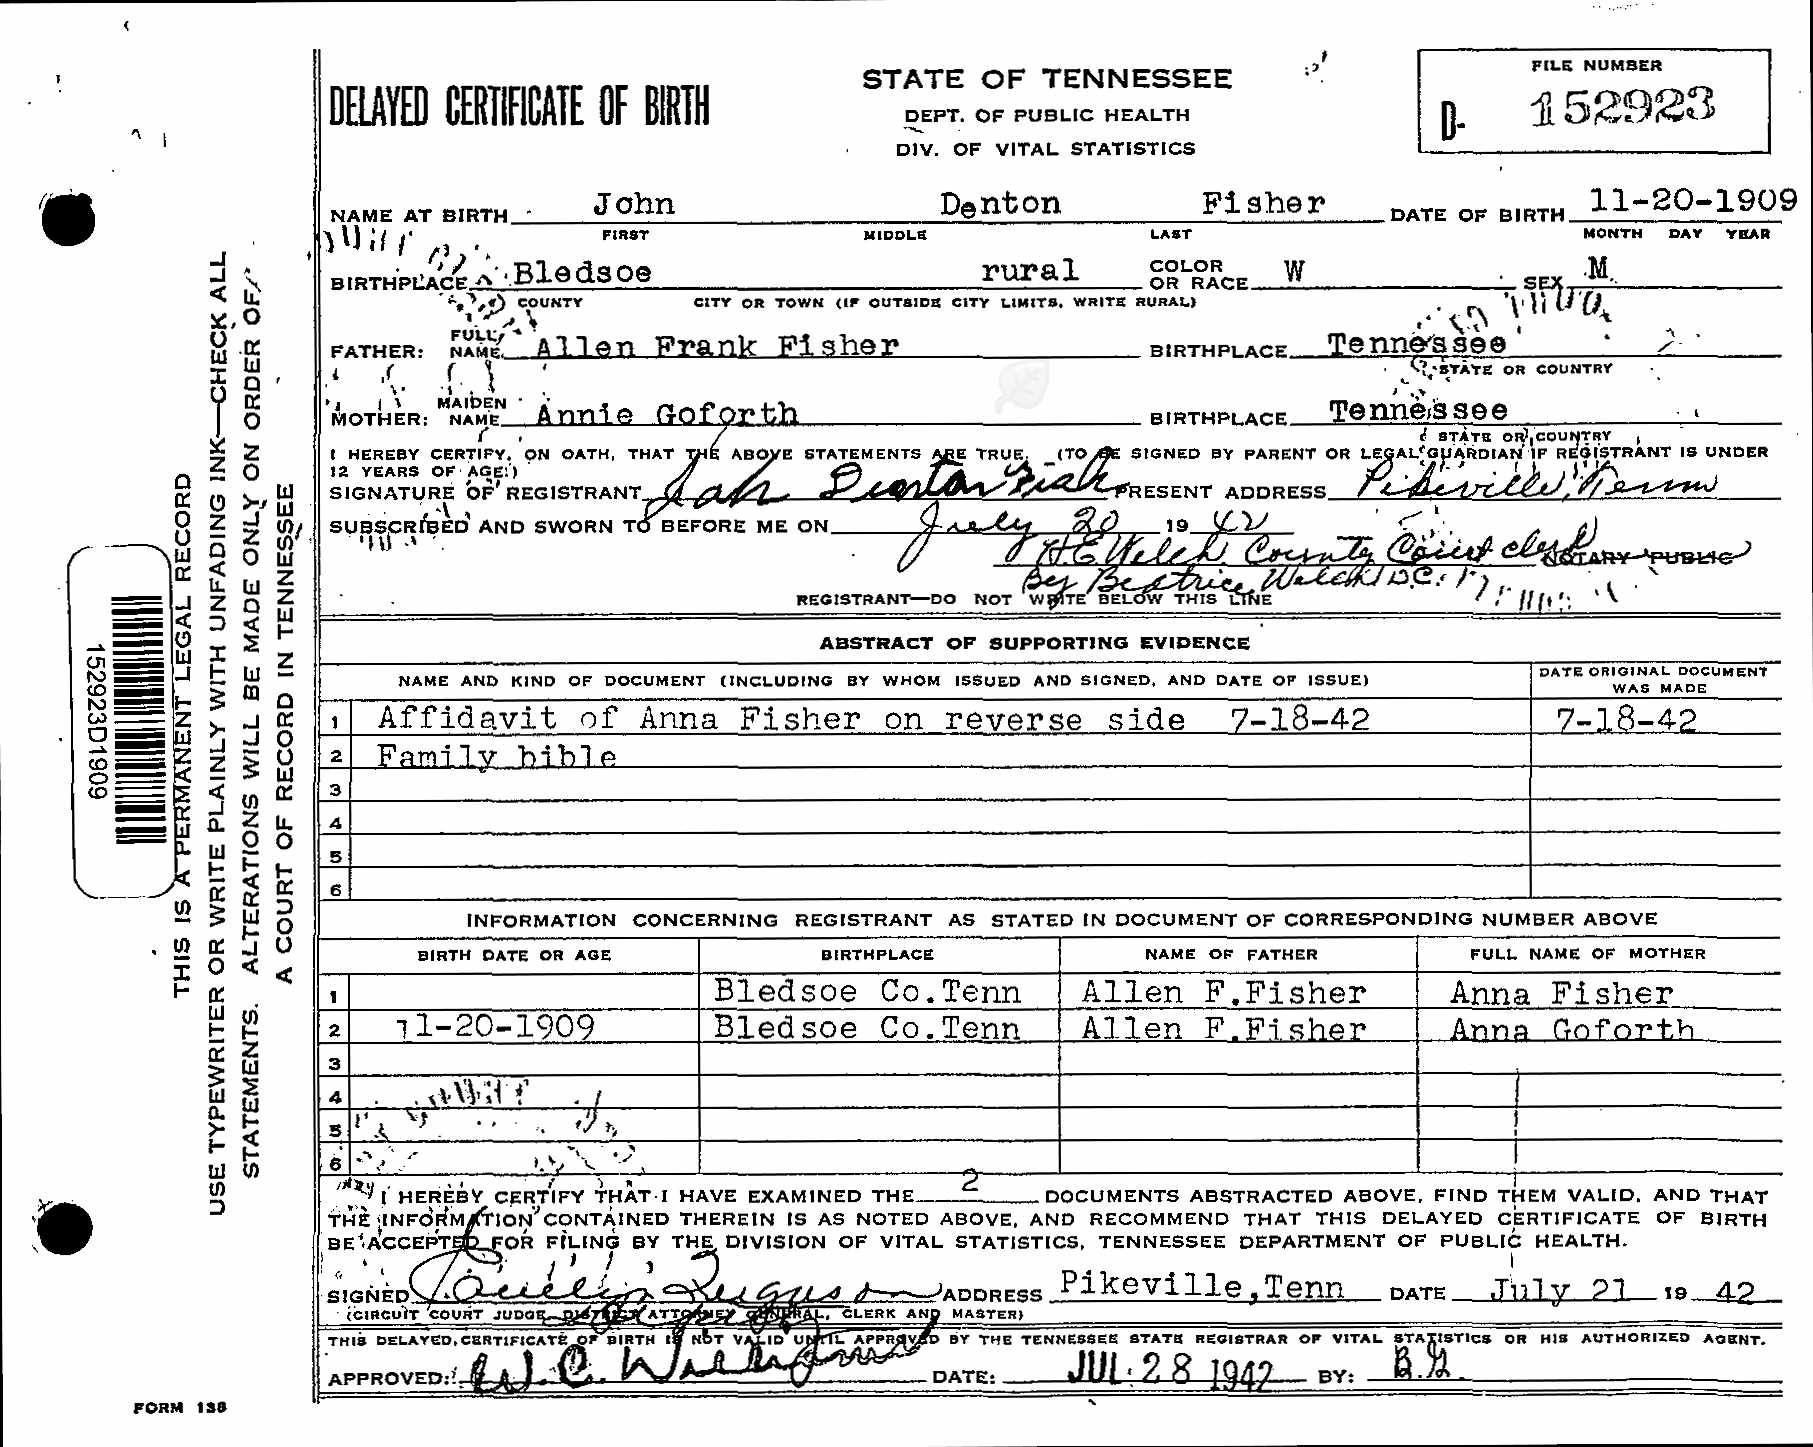 DELAYED CERTIFICATE OF BIRTH
STATE OF TENNESSEE
DEPT. OF PUBLIC HEALTH
DIV. OF VITAL STATISTICS
FILE NUMBER
D- 152923
NAME AT BIRTH John Denton Fisher DATE OF BIRTH 11-20-1909
FIRST MIDDLE LAST MONTH DAY YEAR
BIRTHPLACE Bledsoe rural COLOR OR RACE W SEX M
COUNTY CITY OR TOWN (IF OUTSIDE CITY LIMITS, WRITE RURAL)
FATHER: FULL NAME Allen Frank Fisher BIRTHPLACE Tennessee
STATE OR COUNTRY
MOTHER: MAIDEN NAME Annie Goforth BIRTHPLACE Tennessee
STATE OR COUNTRY
I HEREBY CERTIFY, ON OATH, THAT THE ABOVE STATEMENTS ARE TRUE. (TO BE SIGNED BY PARENT OR LEGAL GUARDIAN IF REGISTRANT IS UNDER
12 YEARS OF AGE.)
SIGNATURE OF REGISTRANT Denton PRESENT ADDRESS Pikeville, Tenn
SUBSCRIBED AND SWORN TO BEFORE ME ON July 20 19 42
H E Welch County Court clerk NOTARY PUBLIC
By Beatrice Welch D.C.
REGISTRANT—DO NOT WRITE BELOW THIS LINE
ABSTRACT OF SUPPORTING EVIDENCE
NAME AND KIND OF DOCUMENT (INCLUDING BY WHOM ISSUED AND SIGNED, AND DATE OF ISSUE) DATE ORIGINAL DOCUMENT WAS MADE
1 Affidavit of Anna Fisher on reverse side 7-18-42 7-18-42
2 Family bible
3
4
5
6
INFORMATION CONCERNING REGISTRANT AS STATED IN DOCUMENT OF CORRESPONDING NUMBER ABOVE
BIRTH DATE OR AGE BIRTHPLACE NAME OF FATHER FULL NAME OF MOTHER
1 Bledsoe Co.Tenn Allen F.Fisher Anna Fisher
2 11-20-1909 Bledsoe Co.Tenn Allen F.Fisher Anna Goforth
3
4
5
6
I HEREBY CERTIFY THAT I HAVE EXAMINED THE 2 DOCUMENTS ABSTRACTED ABOVE, FIND THEM VALID, AND THAT
THE INFORMATION CONTAINED THEREIN IS AS NOTED ABOVE, AND RECOMMEND THAT THIS DELAYED CERTIFICATE OF BIRTH
BE ACCEPTED FOR FILING BY THE DIVISION OF VITAL STATISTICS, TENNESSEE DEPARTMENT OF PUBLIC HEALTH.
SIGNED ADDRESS Pikeville,Tenn DATE July 21 19 42
(CIRCUIT COURT JUDGE, DISTRICT ATTORNEY GENERAL, CLERK AND MASTER)
THIS DELAYED CERTIFICATE OF BIRTH IS NOT VALID UNTIL APPROVED BY THE TENNESSEE STATE REGISTRAR OF VITAL STATISTICS OR HIS AUTHORIZED AGENT.
APPROVED: W.C. Williams DATE: JUL 28 1942 BY:
FORM 138
THIS IS A PERMANENT LEGAL RECORD
USE TYPEWRITER OR WRITE PLAINLY WITH UNFADING INK—CHECK ALL
STATEMENTS. ALTERATIONS WILL BE MADE ONLY ON ORDER OF
A COURT OF RECORD IN TENNESSEE
152923D1909